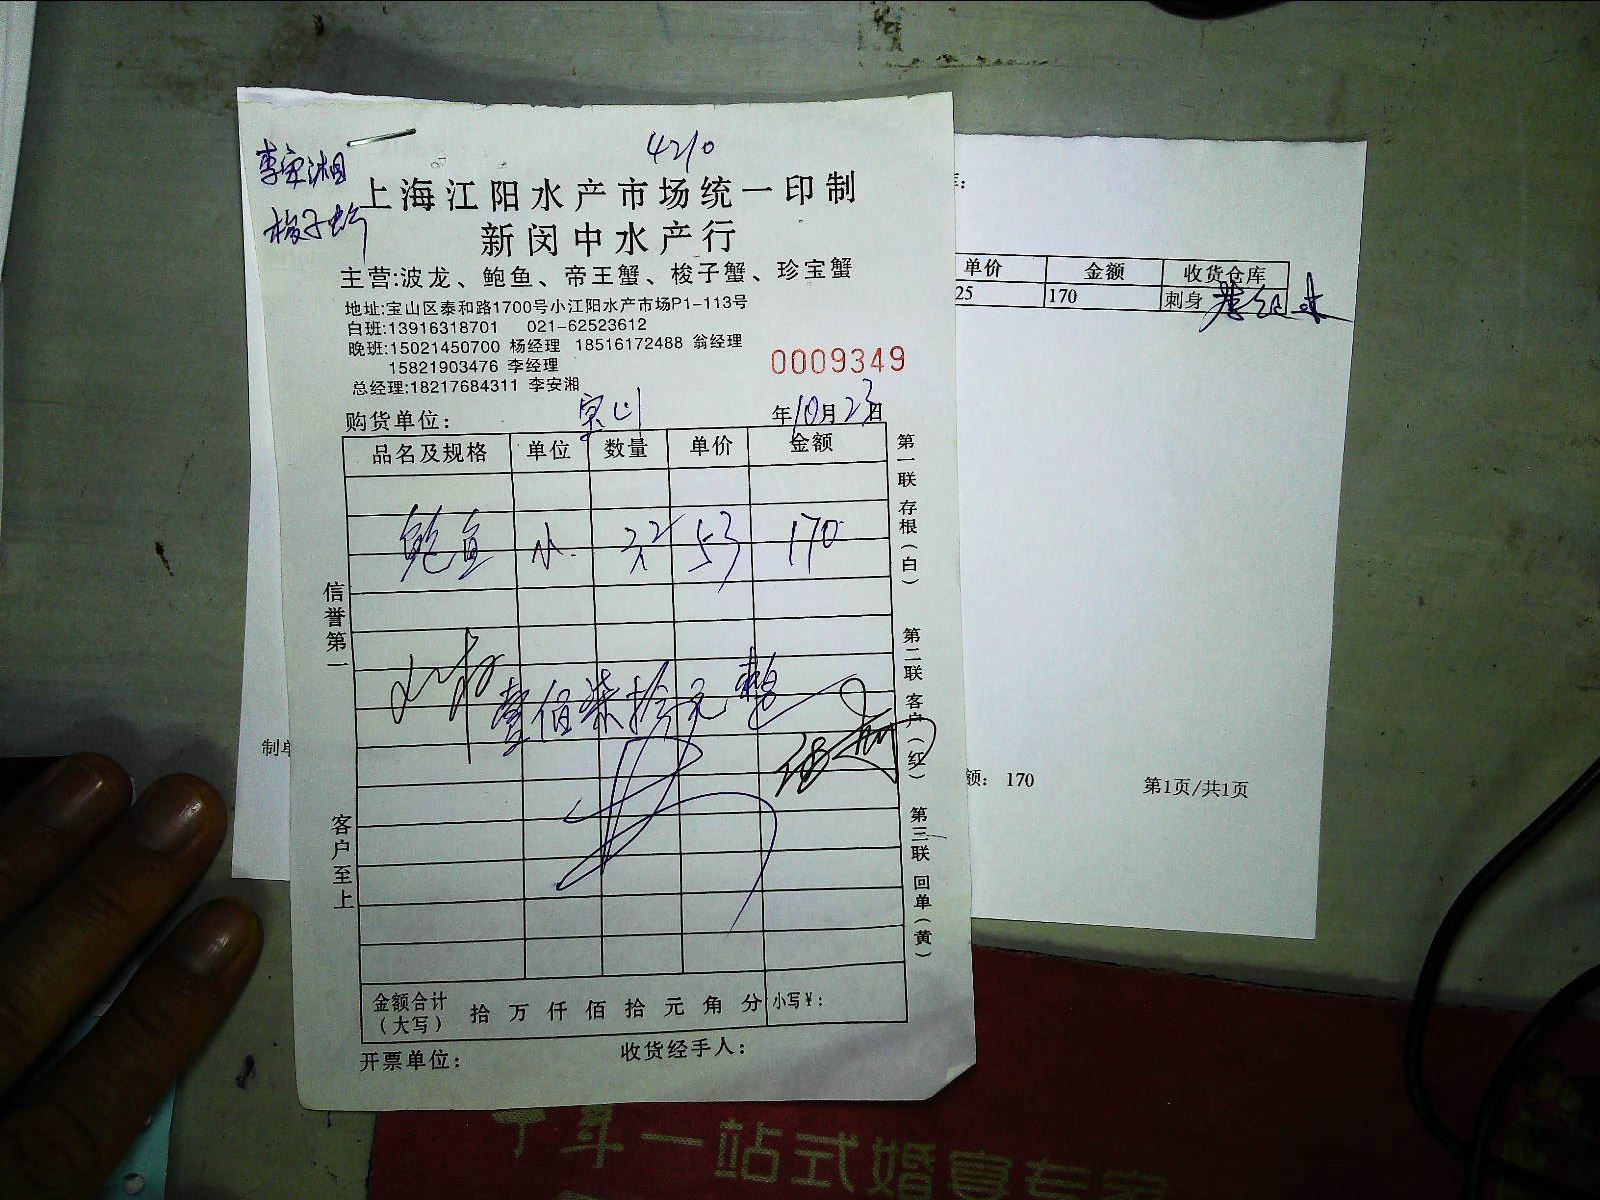 4210
李安湘
梭子蟹
上海江阳水产市场统一印制
新闵中水产行
主营:波龙、鲍鱼、帝王蟹、梭子蟹、珍宝蟹
地址:宝山区泰和路1700号小江阳水产市场P1-113号
白班:13916318701 021-62523612
晚班:15021450700 杨经理 18516172488 翁经理
15821903476 李经理
总经理:18217684311 李安湘
0009349
购货单位:
年10月23日
品名及规格 单位 数量 单价 金额
鲍鱼 小 32 53 170
壹佰柒拾元整
金额合计(大写) 拾 万 仟 佰 拾 元 角 分 小写¥:
开票单位: 收货经手人:
信誉第一
客户至上
第一联 存根(白)
第二联 客户(红)
第三联 回单(黄)
单价 金额 收货仓库
25 170 刺身
制单
额: 170 第1页/共1页
一站式婚宴专家